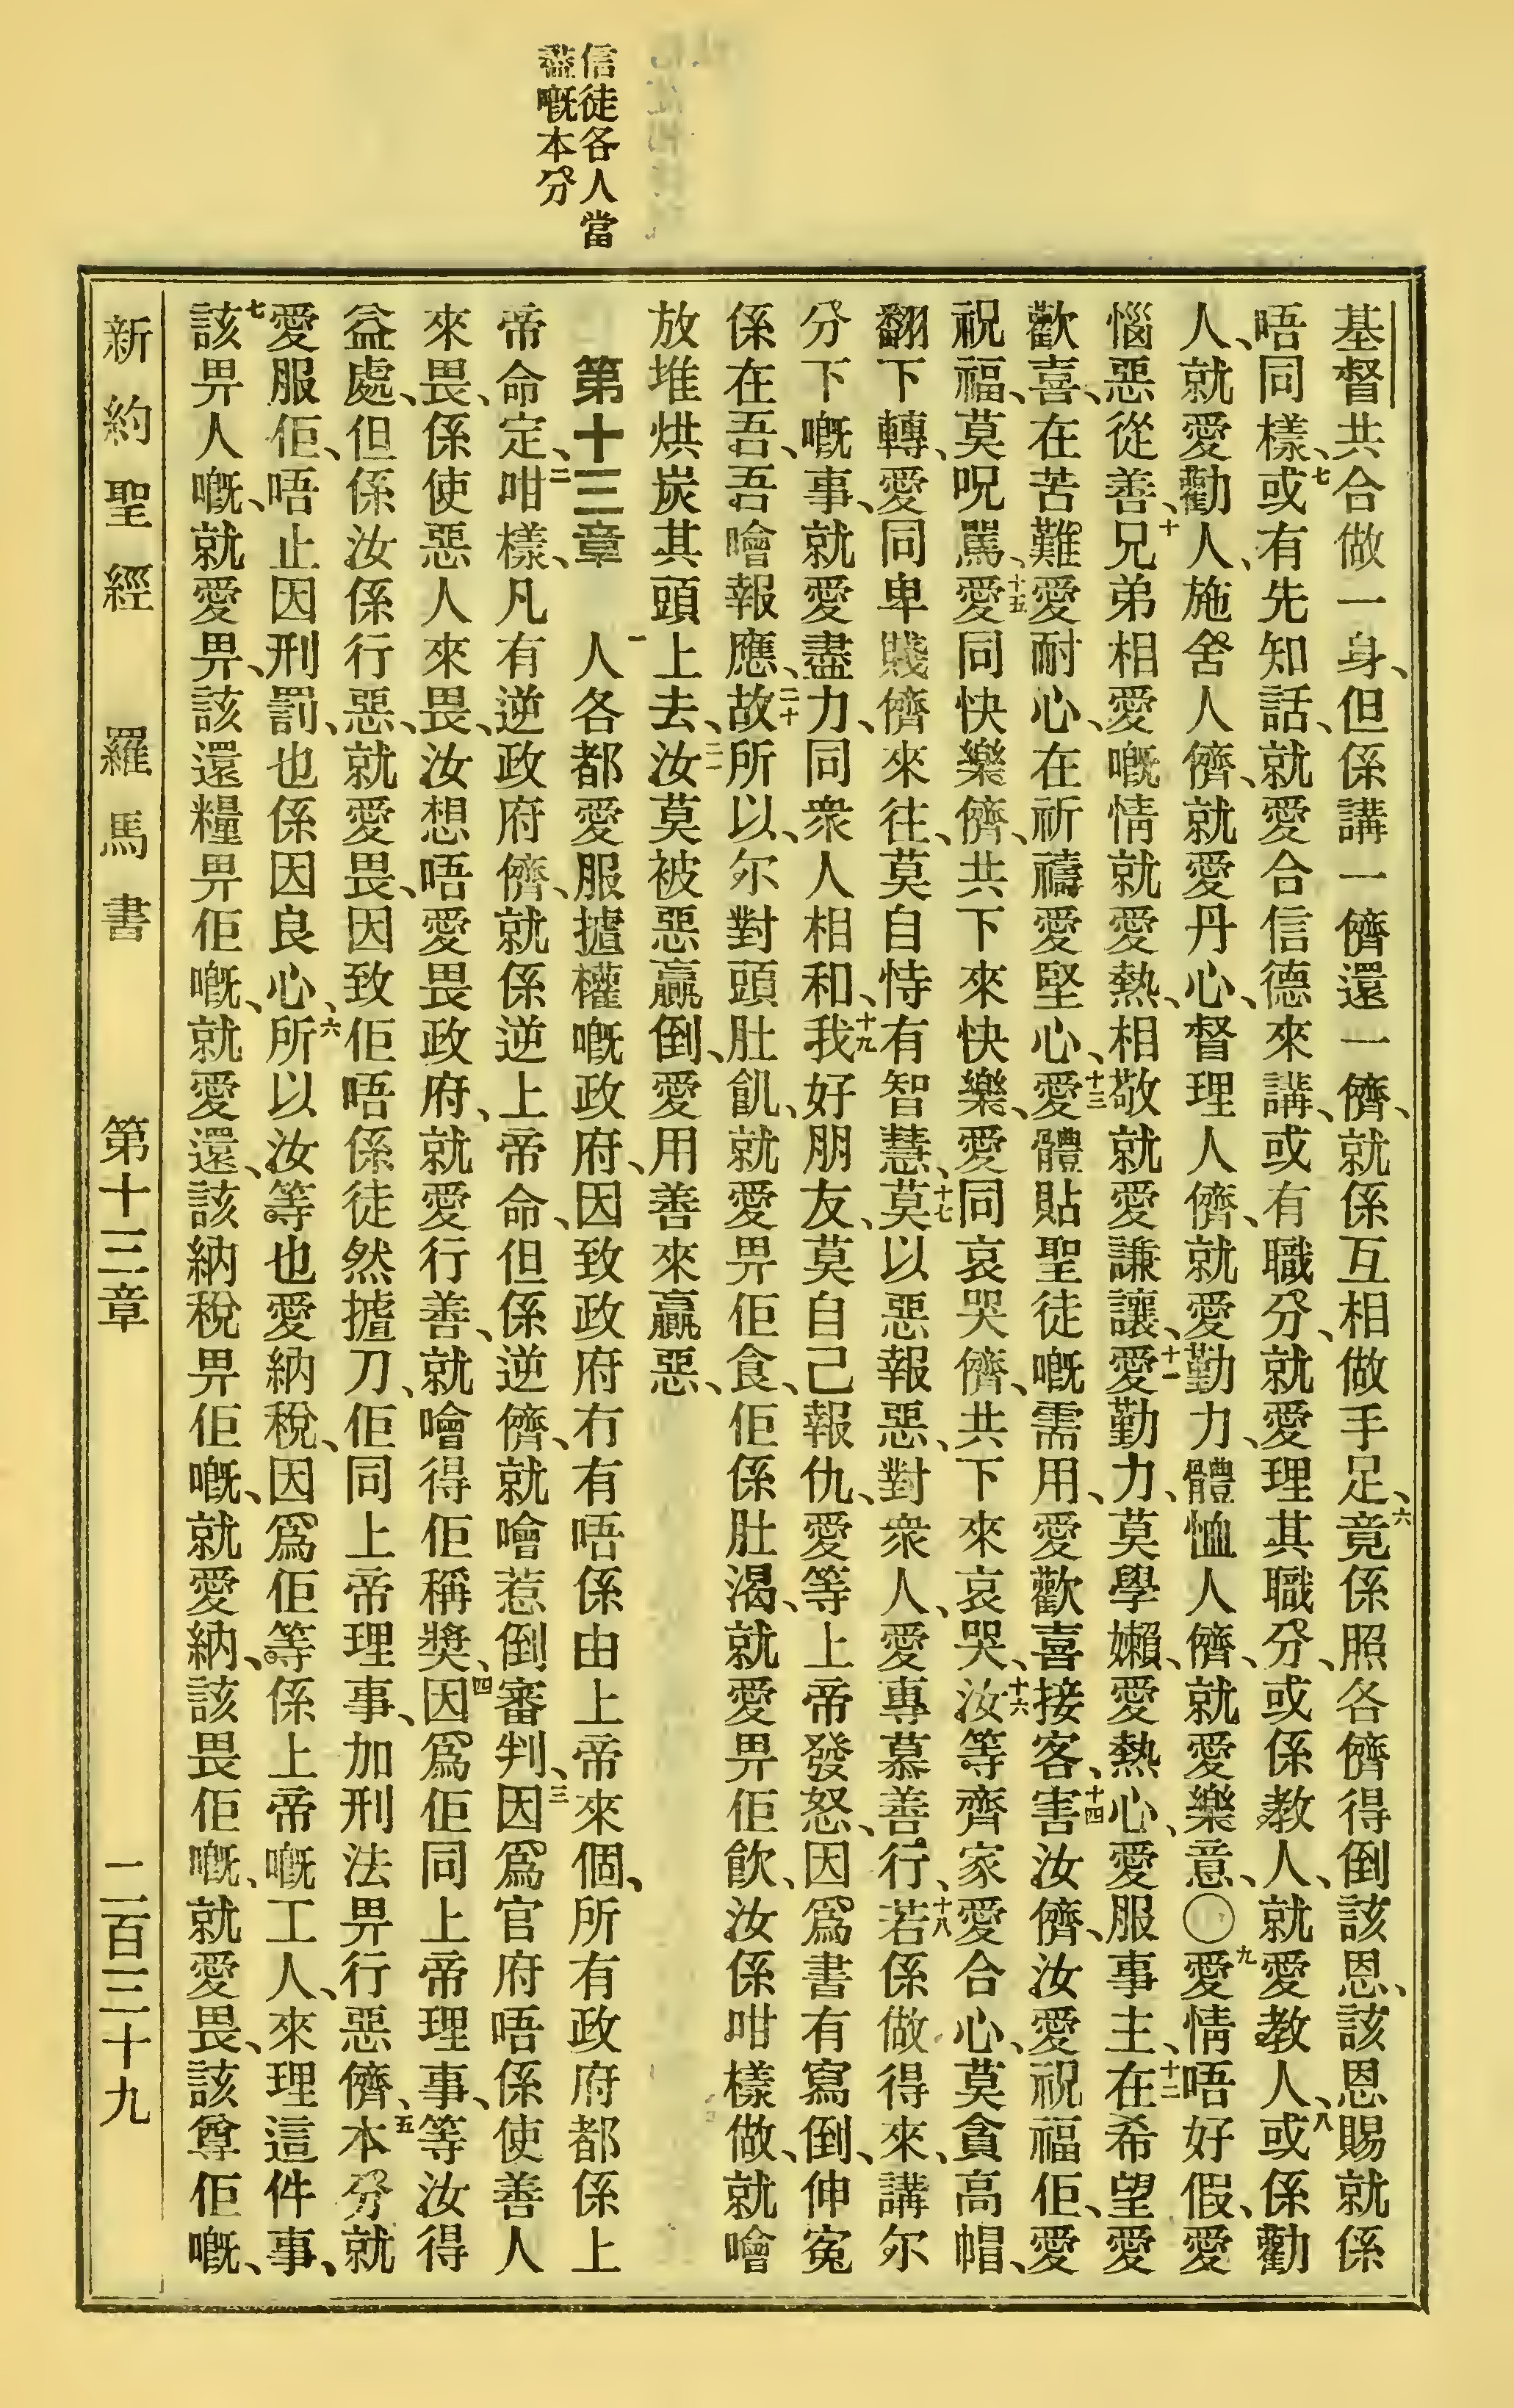 信徒各人當
盡嘅本分
基督共合做一身、但係講一儕還一儕、就係互相做手足、六竟係照各儕得倒該恩、該恩賜就係
唔同樣、七或有先知話、就愛合信德來講、或有職分、就愛理其職分、或係教人、就愛教人、八或係勸
人、就愛勸人、施舍人儕、就愛丹心、督理人儕、就愛勤力、體恤人儕、就愛樂意、〇九愛情唔好假、愛
惱惡從善、十兄弟相愛嘅情就愛熱、相敬就愛謙讓、十一愛勤力、莫學嬾、愛熱心、愛服事主、十二在希望愛
歡喜、在苦難愛耐心、在祈禱愛堅心、十三愛體貼聖徒嘅需用、愛歡喜接客、十四害汝儕、汝愛祝福佢、愛
祝福、莫呪罵、十五愛同快樂儕、共下來快樂、愛同哀哭儕、共下來哀哭、十六汝等齊家愛合心、莫貪高帽、
翻下轉、愛同卑賤儕來往、莫自恃有智慧、十七莫以惡報惡、對衆人、愛專慕善行、十八若係做得來、講尔
分下嘅事、就愛盡力、同衆人相和、十九我好朋友、莫自己報仇、愛等上帝發怒、因爲書有寫倒、伸寃
係在吾、吾噲報應、二十故所以、尔對頭肚飢、就愛畀佢食、佢係肚渴、就愛畀佢飲、汝係咁樣做、就噲
放堆烘炭其頭上去、二一汝莫被惡贏倒、愛用善來贏惡、
第十三章　一人各都愛服揸權嘅政府、因致政府冇有唔係由上帝來個、所有政府都係上
帝命定、二咁樣、凡有逆政府儕、就係逆上帝命、但係逆儕、就噲惹倒審判、三因爲官府唔係使善人
來畏、係使惡人來畏、汝想唔愛畏政府、就愛行善、就噲得佢稱獎、四因爲佢同上帝理事、等汝得
益處、但係汝係行惡、就愛畏、因致佢唔係徒然揸刀、佢同上帝理事、加刑法畀行惡儕、五本分就
愛服佢、唔止因刑罰、也係因良心、六所以汝等也愛納稅、因爲佢等係上帝嘅工人、來理這件事、
七該畀人嘅、就愛畀、該還糧畀佢嘅、就愛還、該納稅畀佢嘅、就愛納、該畏佢嘅、就愛畏、該尊佢嘅、
新約聖經　羅馬書　第十三章　二百三十九